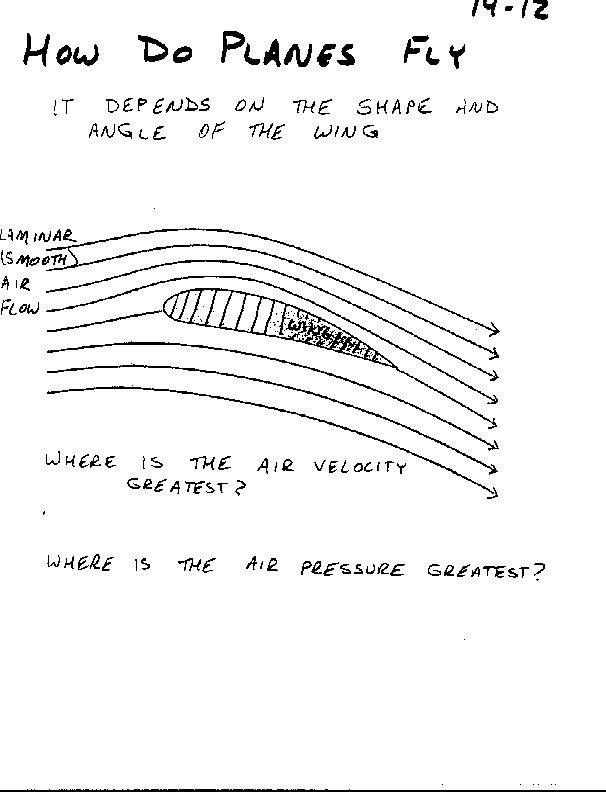 19-12
HOW DO PLANES FLY
IT DEPENDS ON THE SHAPE AND
ANGLE OF THE WING
LAMINAR
(SMOOTH)
AIR
FLOW
WHERE IS THE AIR VELOCITY
GREATEST?
WHERE IS THE AIR PRESSURE GREATEST?